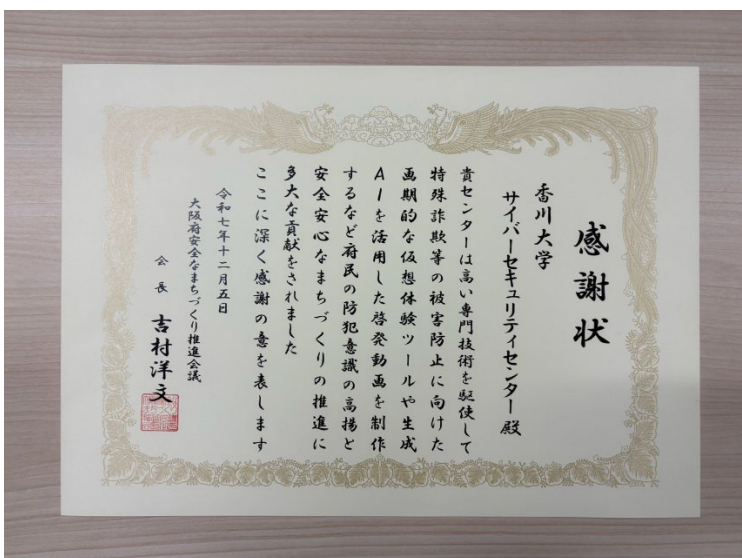 感謝状
香川大学
サイバーセキュリティセンター 殿
貴センターは高い専門技術を駆使して
特殊詐欺等の被害防止に向けた
画期的な仮想体験ツールや生成
AIを活用した啓発動画を制作
するなど府民の防犯意識の高揚と
安全安心なまちづくりの推進に
多大な貢献をされました
ここに深く感謝の意を表します
令和七年十二月五日
大阪府安全なまちづくり推進会議
会長 吉村洋文